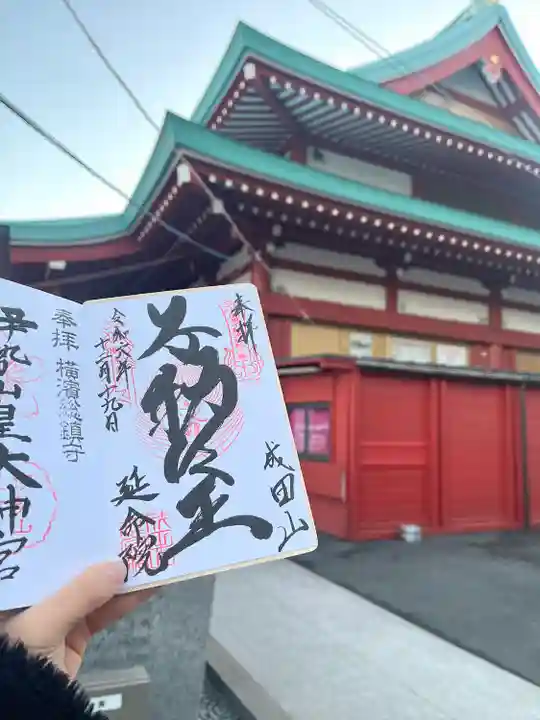 奉拝
成田山
不動明王
延命院
令和六年
十二月十九日
奉拝 横濱総鎮守
伊勢山皇大神宮